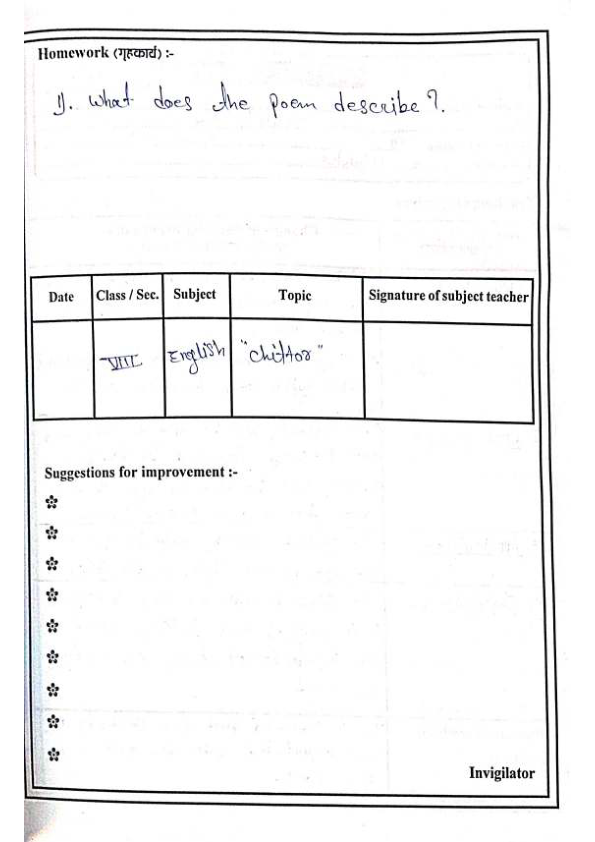 Homework (गृहकार्य) :-
1). What does the poem describe?.
Date Class / Sec. Subject Topic Signature of subject teacher
VIII English "Chittor"
Suggestions for improvement :-
Invigilator